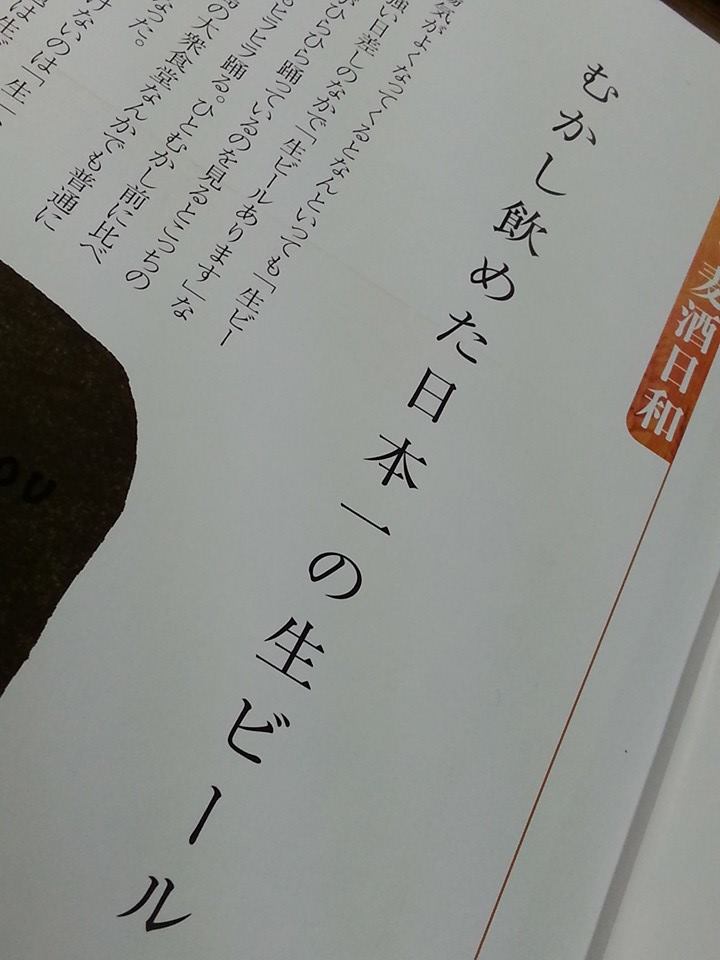 麦酒日和
むかし飲めた日本一の生ビール
気がよくなってくるとなんといっても「生ビー
強い日差しのなかで「生ビールあります」な
がひらひら踊っているのを見るとこっちの
ピラピラ踊る。ひとむかし前に比べ
の大衆食堂なんかでも普通に
なった。
けないのは「生」
は生ビ